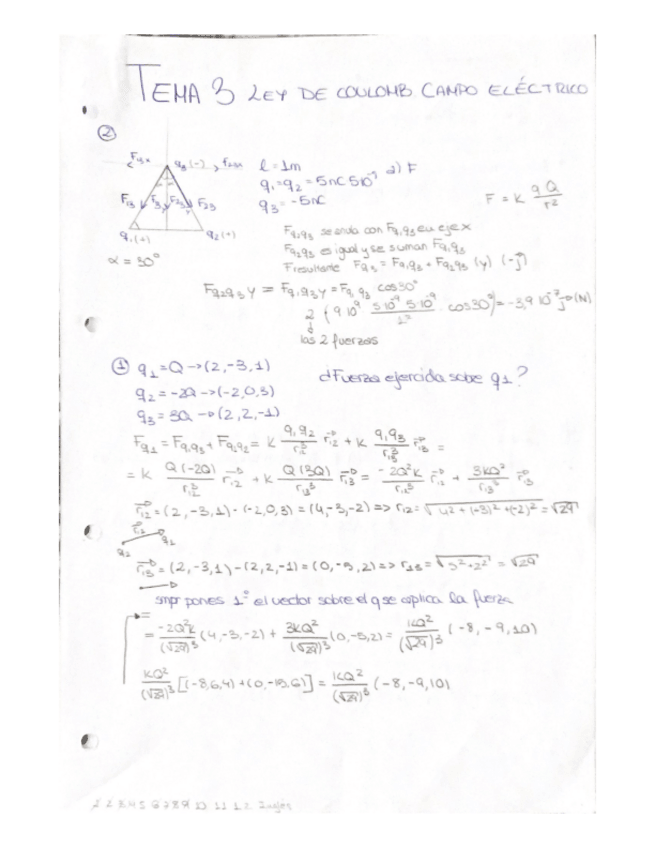 TEMA 3 LEY DE COULOMB CAMPO ELÉCTRICO
②
q3 (-)
l = 1m
a) F
q1 = q2 = 5nC 5·10⁻⁹
q3 = -5nC
F = K qQ/r²
F13 F23
q1 (+) q2 (+)
α = 30°
Fq1q3 se anula con Fq2q3 en eje x
Fq2q3 es igual y se suman Fq1q3
F resultante Fq3 = Fq1q3 + Fq2q3 (y) (-j)
Fq2q3 y = Fq1q3 y = Fq1q3 cos30°
2 (9·10⁹ 5·10⁻⁹ 5·10⁻⁹/1² · cos30°) = -3,9·10⁻⁷ j (N)
las 2 fuerzas
① q1 = Q → (2,-3,1)
¿Fuerza ejercida sobre q1?
q2 = -2Q → (-2,0,3)
q3 = 3Q → (2,2,-1)
Fq1 = Fq1q3 + Fq1q2 = K q1q2/r12³ r12 + K q1q3/r13³ r13 =
= K Q(-2Q)/r12³ r12 + K Q(3Q)/r13³ r13 = -2Q²K/r12³ r12 + 3KQ²/r13³ r13
r12 = (2,-3,1) - (-2,0,3) = (4,-3,-2) => r12 = √4²+(-3)²+(-2)² = √29
r12
q2 q1
r13 = (2,-3,1) - (2,2,-1) = (0,-5,2) => r13 = √5²+2² = √29
smpr pones 1º el vector sobre el q se aplica la fuerza
= -2Q²K/(√29)³ (4,-3,-2) + 3KQ²/(√29)³ (0,-5,2) = KQ²/(√29)³ (-8,-9,10)
KQ²/(√29)³ [(-8,6,4) + (0,-15,6)] = KQ²/(√29)³ (-8,-9,10)